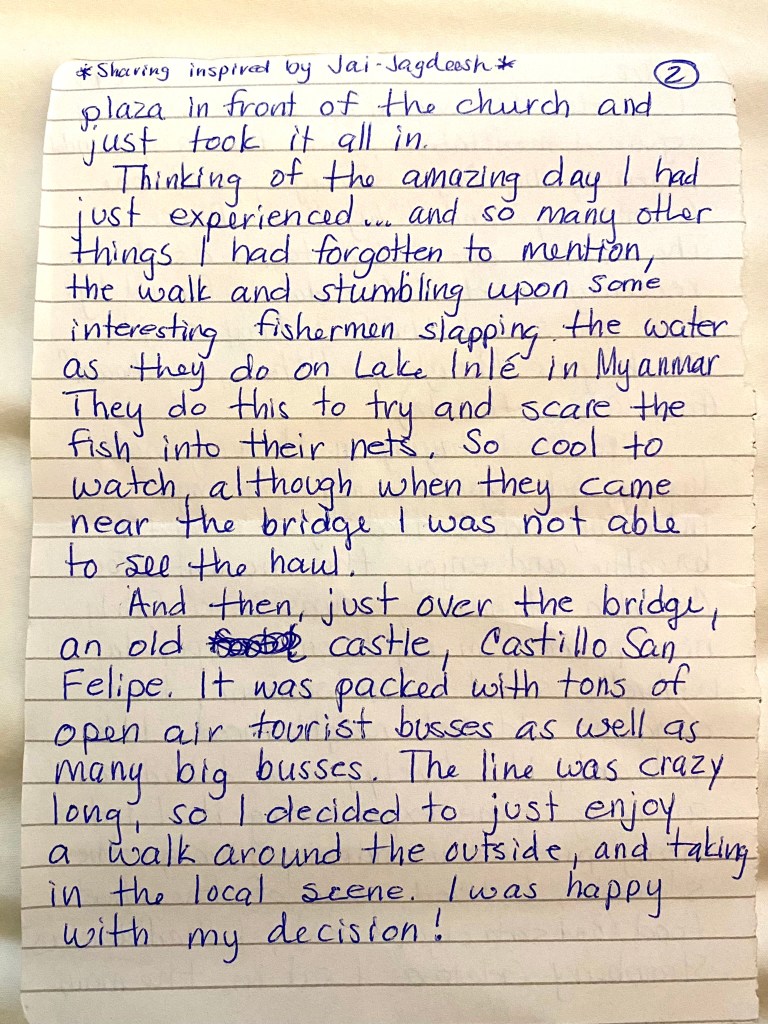 *Sharing inspired by Jai-Jagdeesh*
2
plaza in front of the church and
just took it all in.
Thinking of the amazing day I had
just experienced... and so many other
things I had forgotten to mention,
the walk and stumbling upon some
interesting fishermen slapping the water
as they do on Lake Inlé in Myanmar
They do this to try and scare the
fish into their nets. So cool to
watch, although when they came
near the bridge I was not able
to see the haul.
And then, just over the bridge,
an old castle, Castillo San
Felipe. It was packed with tons of
open air tourist busses as well as
many big busses. The line was crazy
long, so I decided to just enjoy
a walk around the outside, and taking
in the local scene. I was happy
with my decision!